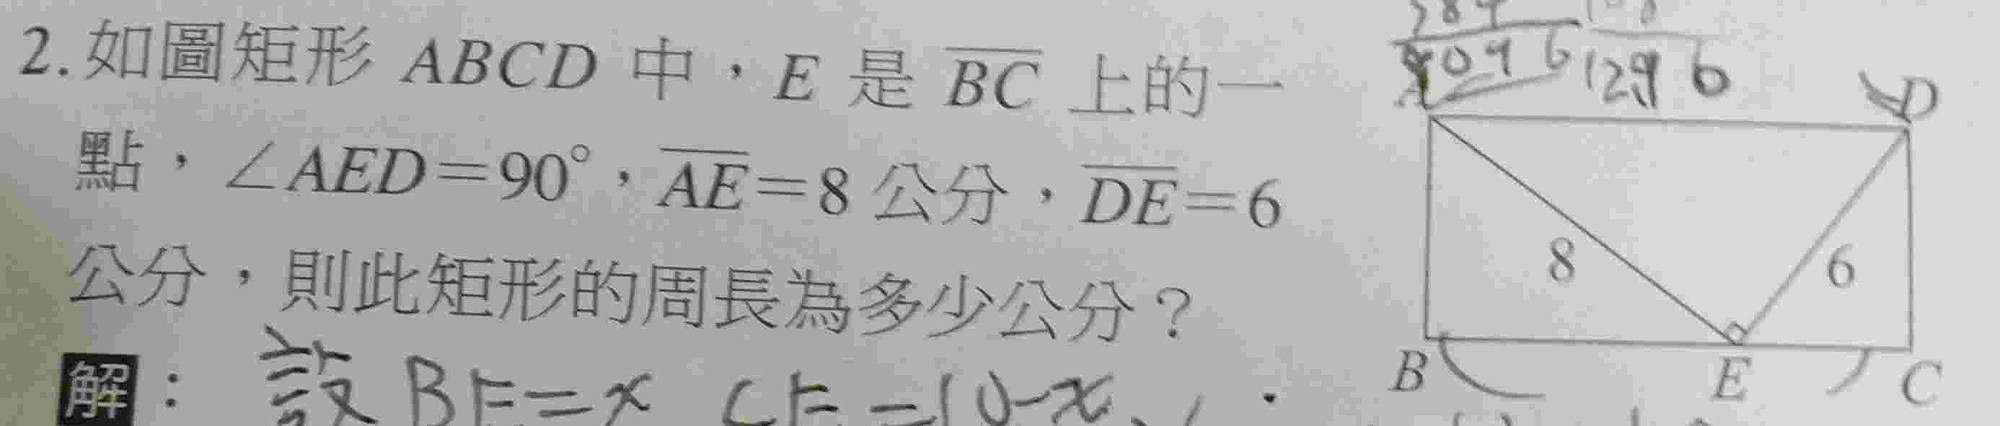 2. 如圖矩形 ABCD 中，E 是 BC 上的一
點，∠AED=90°，AE=8 公分，DE=6
公分，則此矩形的周長為多少公分？
解： 設 BE=x CE=10-x
4096 1296
A D
8 6
B E C